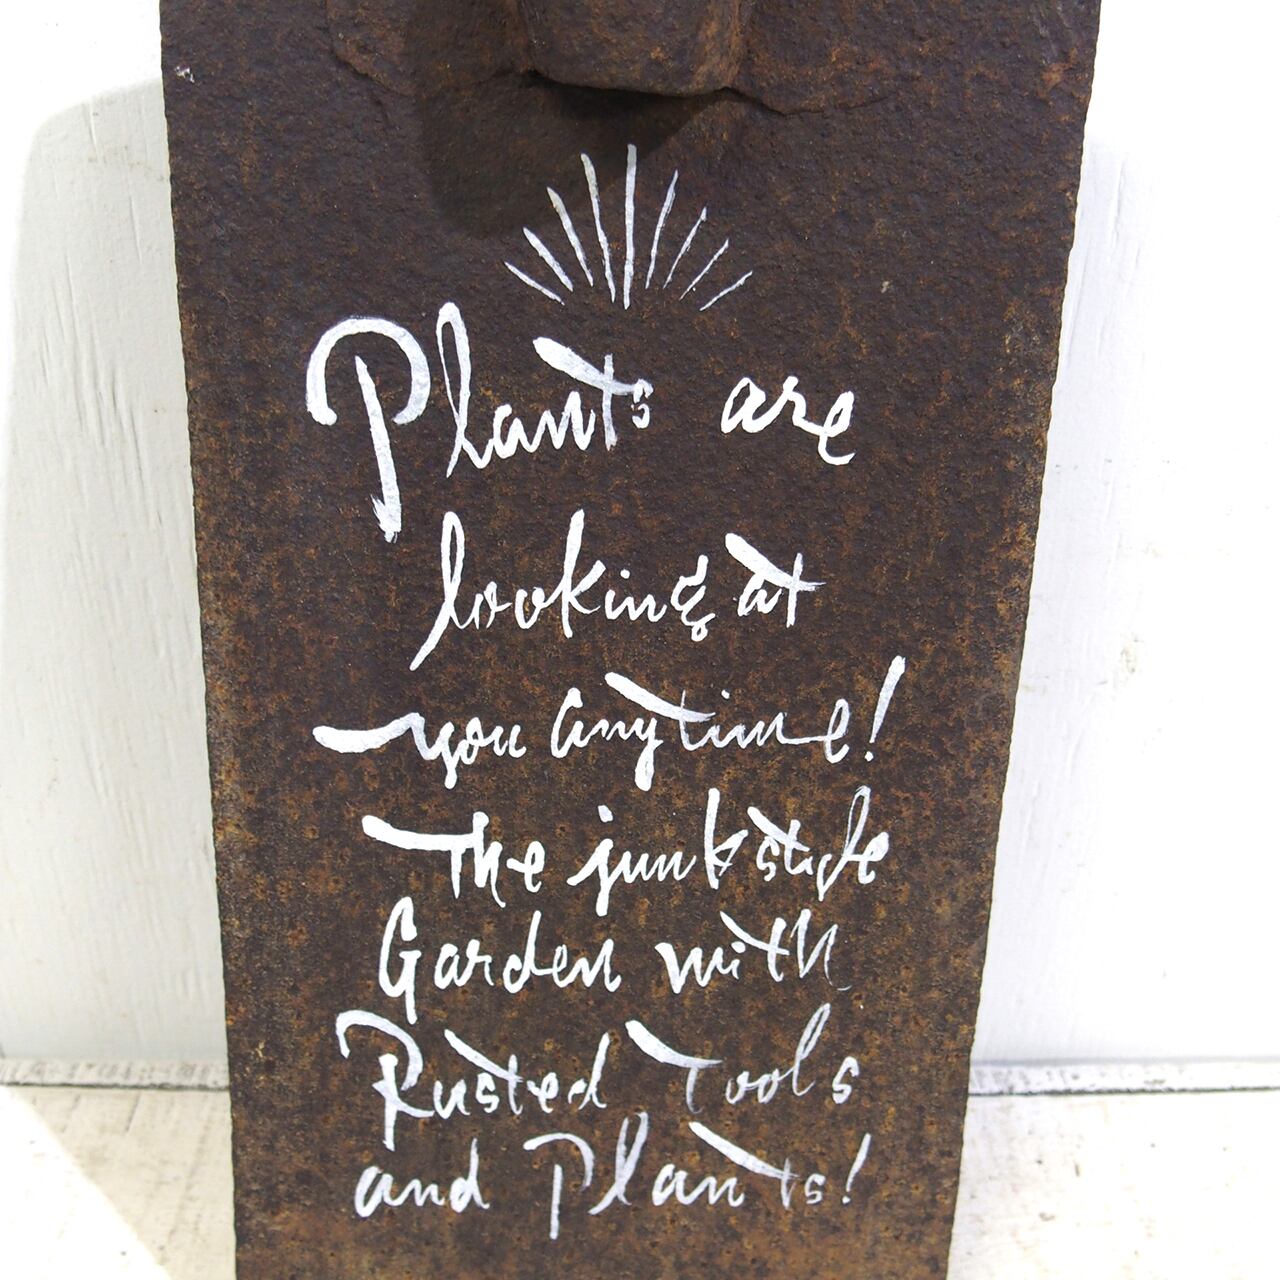 Plants are
looking at
you anytime!
The junk style
Garden with
Rusted Tools
and Plants!